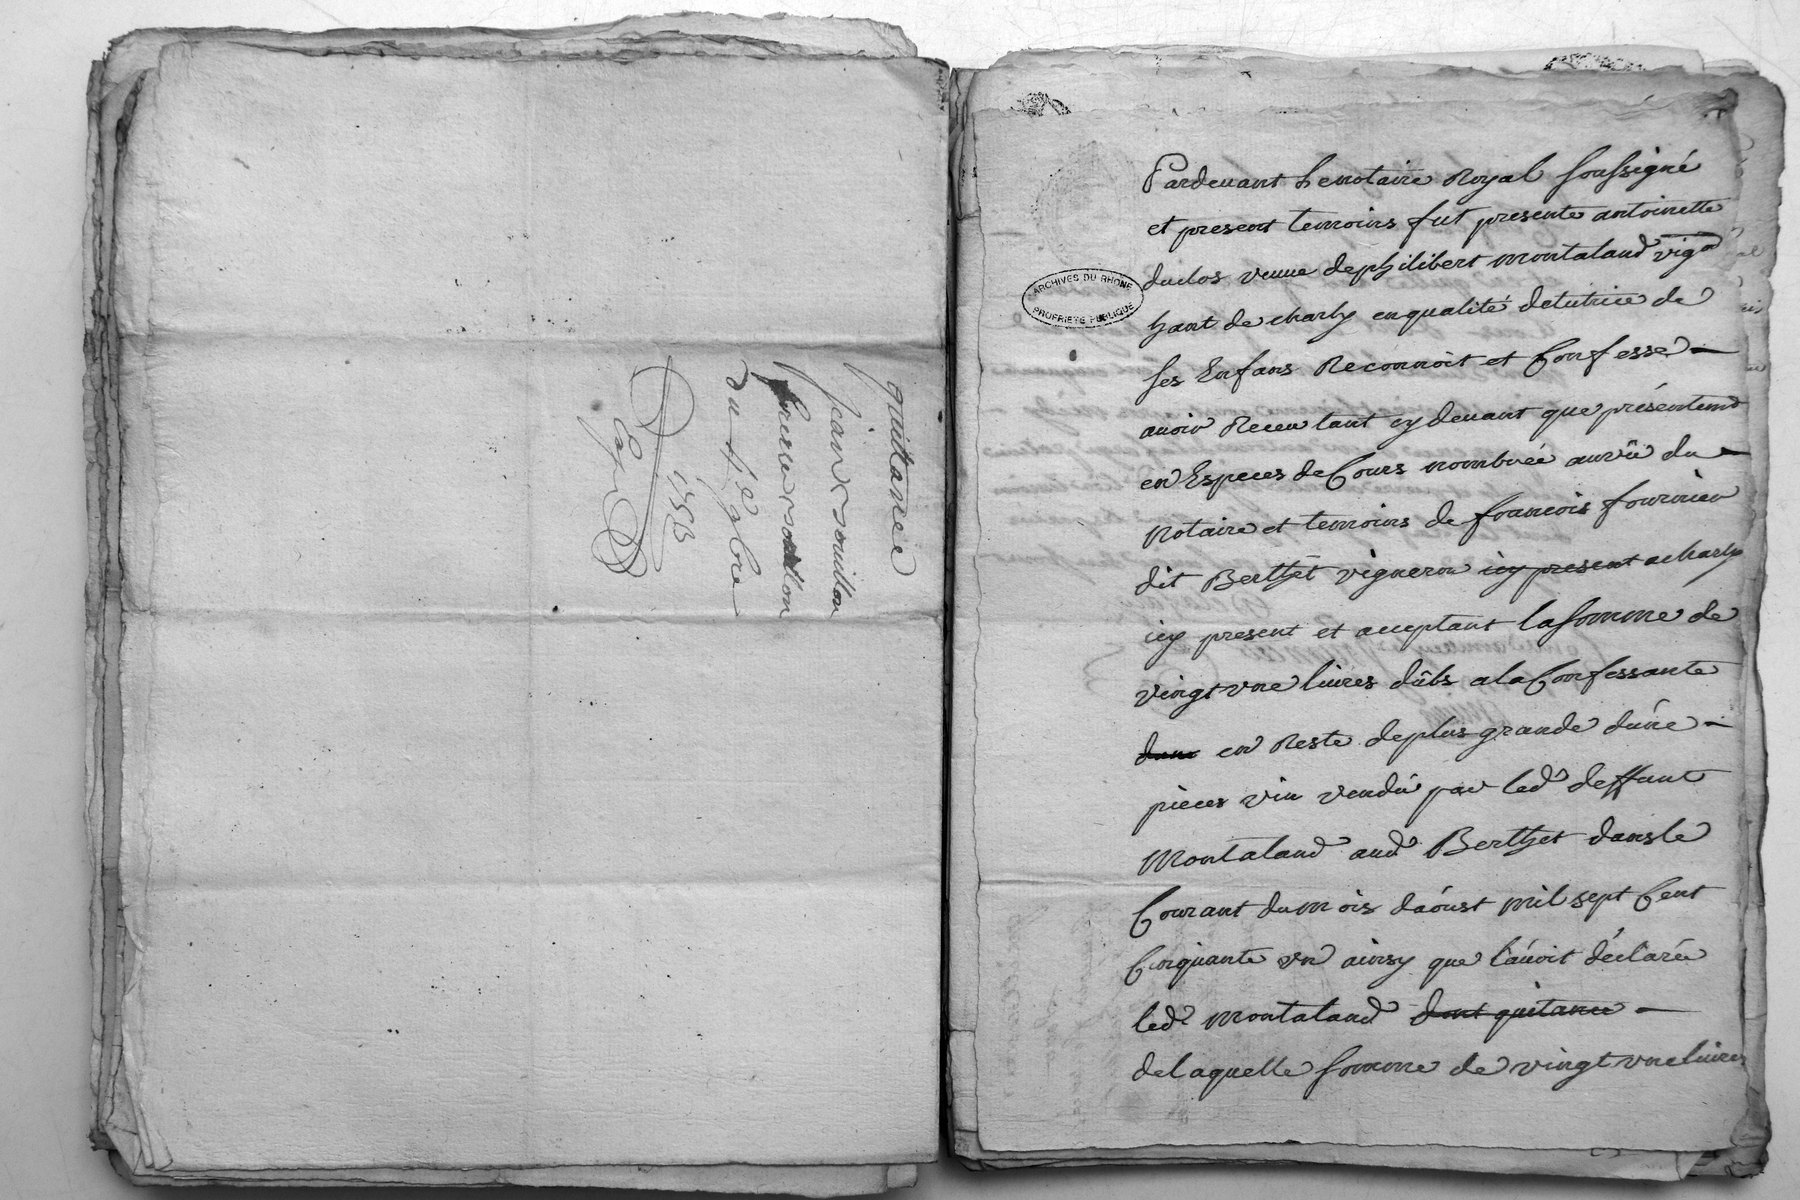 quittance
jean souillon
du 4e 9bre
1753
ARCHIVES DU RHÔNE
PROPRIÉTÉ PUBLIQUE
Pardeuant Le notaire Royal soussigné
et present temoins fut presente antoinette
duclos veuue de philibert montaland vig
hant de charly en qualité de tutrice de
ses Enfans Reconnoit et Confesse
auoir Receu tant cy deuant que présentemt
en Especes de Cours nombrée au vû du
Notaire et temoins de francois fournier
dit Berthet vigneron icy present a charly
icy present et acceptant la somme de
vingt vne liures dûbs a la Confessante
en Reste de plus grande dûne
pieces vin vendû par led deffunt
Montaland aud Berthet dans le
Courant du mois daóust mil sept Cent
Cinquante vn ainsy que láuoit déclarée
led montaland dont quitance
de laquelle somme de vingt vne liures